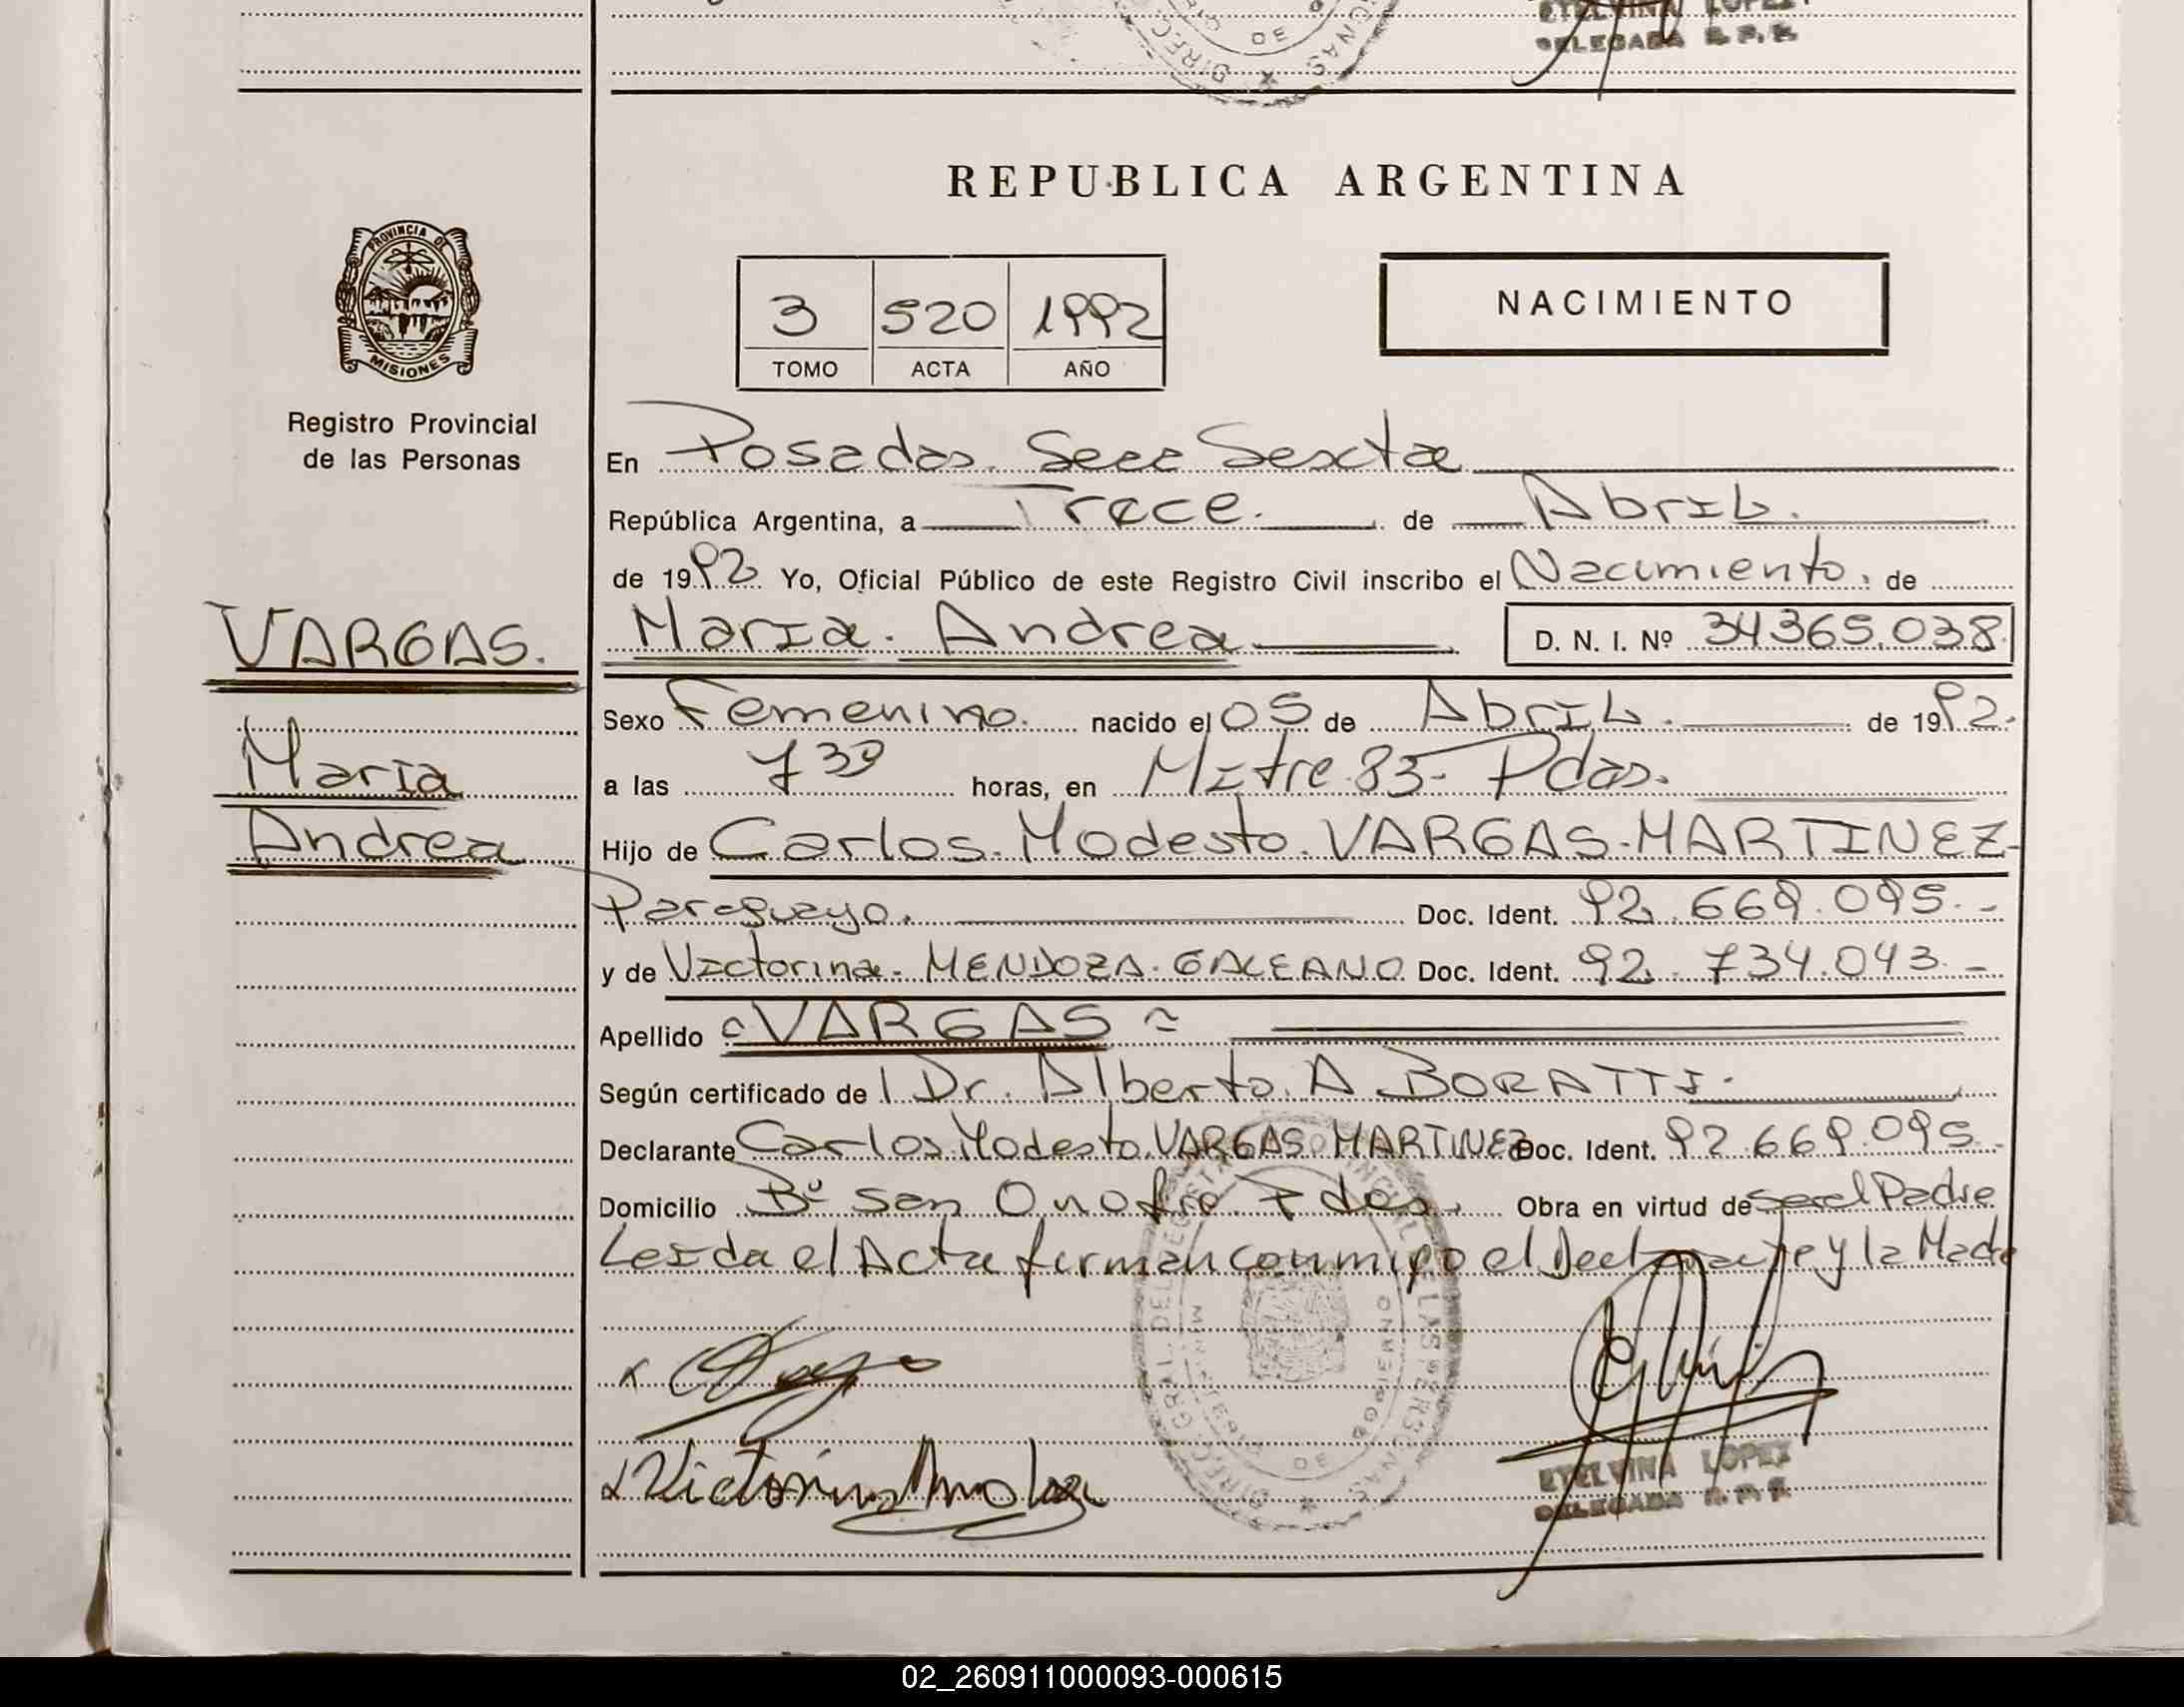 ETELVINA LOPEZ
DELEGADA R. P. P.
DIREC. DE
REPUBLICA ARGENTINA
PROVINCIA DE
MISIONES
Registro Provincial
de las Personas
3 520 1992
TOMO ACTA AÑO
NACIMIENTO
En Posadas. Secc Sexta
República Argentina, a Trece. de Abril.
de 1992. Yo, Oficial Público de este Registro Civil inscribo el Nacimiento, de
VARGAS.
Maria
Andrea
Maria. Andrea D. N. I. Nº 34365.038
Sexo Femenino. nacido el 05 de Abril. de 1992.
a las 7 30 horas, en Mitre 83- Pdas.
Hijo de Carlos. Modesto. VARGAS-MARTINEZ-
Paraguayo. Doc. Ident. 92.669.095.-
y de Victorina. MENDOZA. GALEANO. Doc. Ident. 92.734.043.-
Apellido =VARGAS=
Según certificado de l Dr. Alberto. A. BORATTI.
Declarante Carlos Modesto. VARGAS MARTINEZ Doc. Ident. 92.669.095.
Domicilio Bº San Onofre Pdas. Obra en virtud de ser el Padre
Leida el Acta firman conmigo el Declarante y la Madre
ETELVINA LOPEZ
DELEGADA R. P. P.
02_260911000093-000615